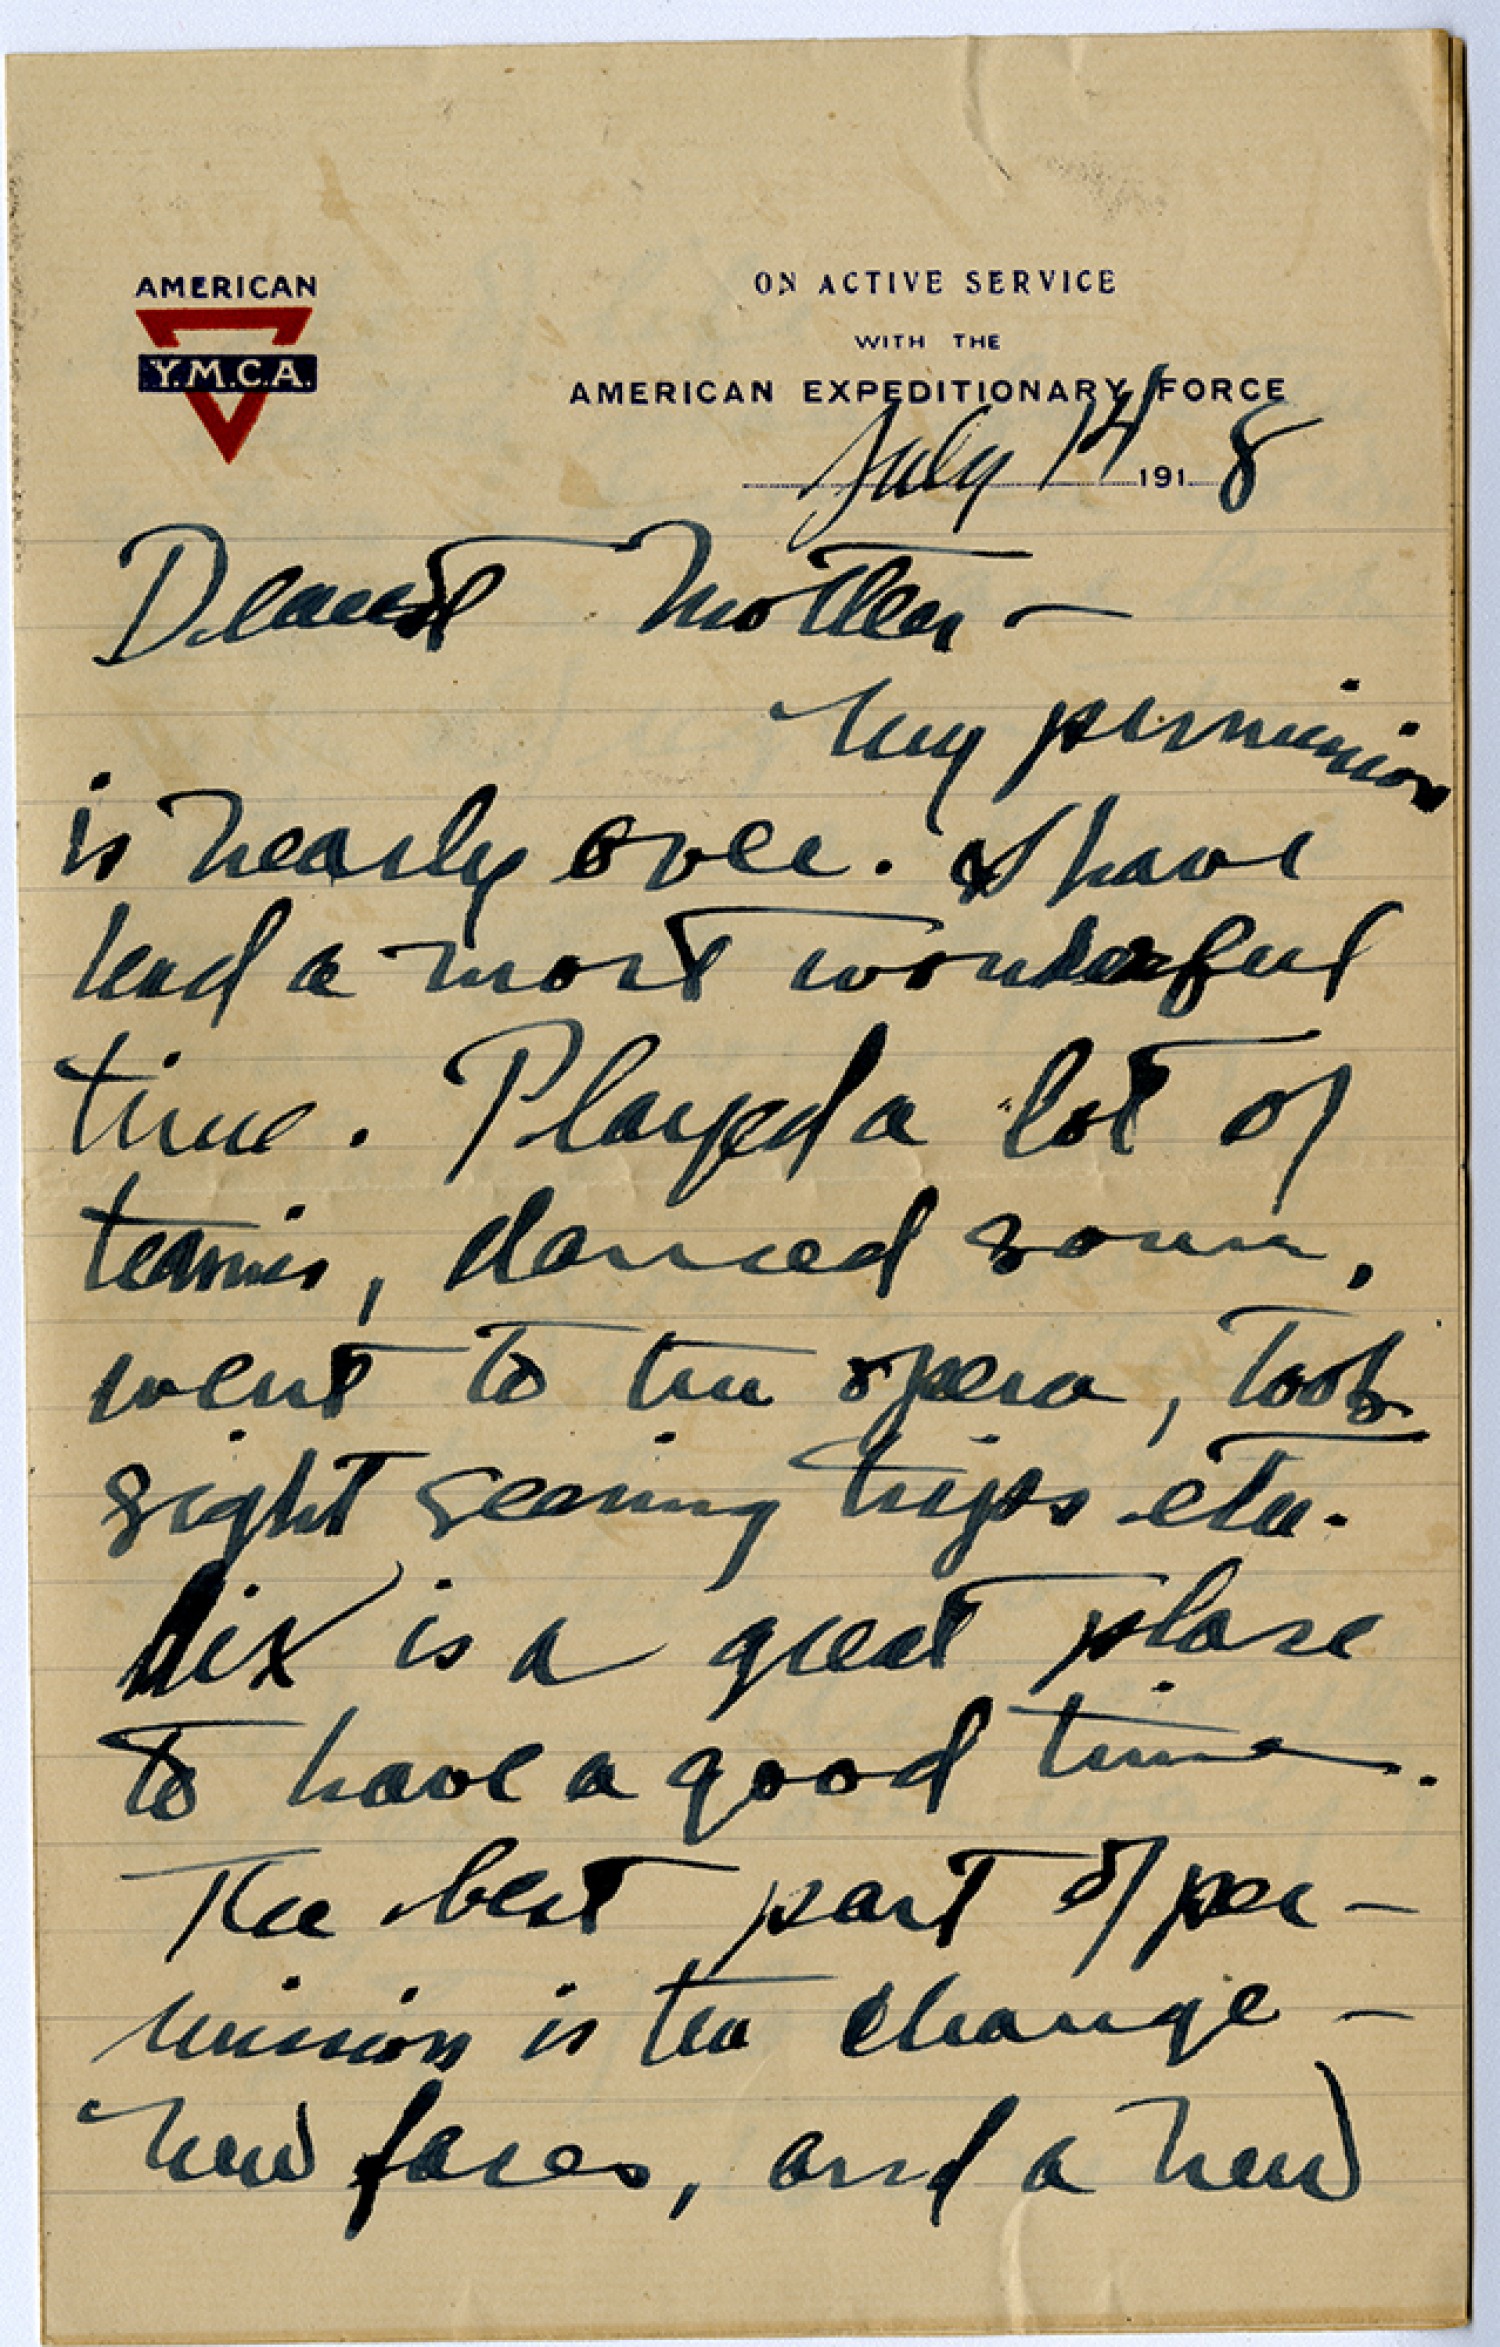 AMERICAN
Y.M.C.A.
ON ACTIVE SERVICE
WITH THE
AMERICAN EXPEDITIONARY FORCE
July 14 1918
Dearest Mother —
My permission
is nearly over. I have
had a most wonderful
time. Played a lot of
tennis, danced some,
went to the opera, took
sight seeing trips etc.
Aix is a great place
to have a good time.
The best part of per-
mission is the change —
new faces, and a new